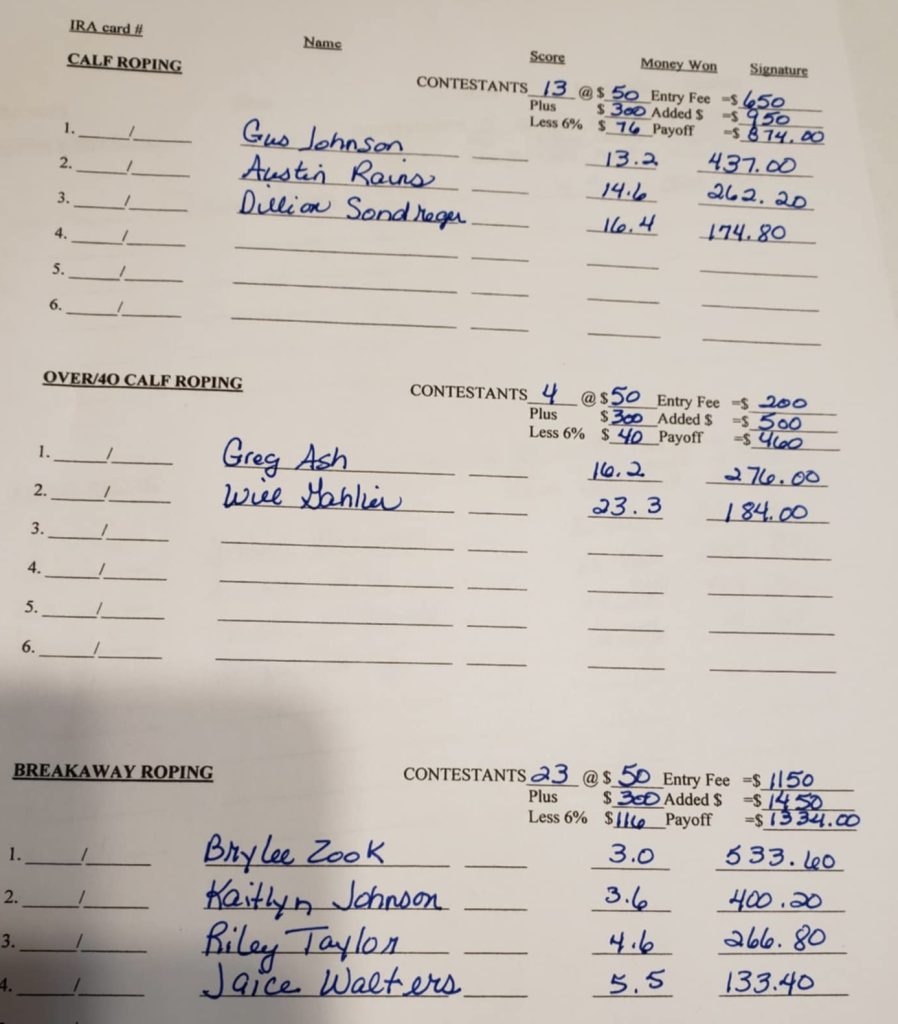 IRA card # Name Score Money Won Signature
CALF ROPING
CONTESTANTS 13 @ $ 50 Entry Fee =$ 650
Plus $ 300 Added $ =$ 950
Less 6% $ 76 Payoff =$ 874.00
1. / Gus Johnson 13.2 437.00
2. / Austin Rains 14.6 262.20
3. / Dillion Sondreger 16.4 174.80
4. /
5. /
6. /
OVER/40 CALF ROPING
CONTESTANTS 4 @ $ 50 Entry Fee =$ 200
Plus $ 300 Added $ =$ 500
Less 6% $ 40 Payoff =$ 460
1. / Greg Ash 16.2 276.00
2. / Will 23.3 184.00
3. /
4. /
5. /
6. /
BREAKAWAY ROPING
CONTESTANTS 23 @ $ 50 Entry Fee =$ 1150
Plus $ 300 Added $ =$ 1450
Less 6% $ 116 Payoff =$ 1334.00
1. / Brylee Zook 3.0 533.60
2. / Kaitlyn Johnson 3.6 400.20
3. / Riley Taylor 4.6 266.80
4. / Jaice Walters 5.5 133.40